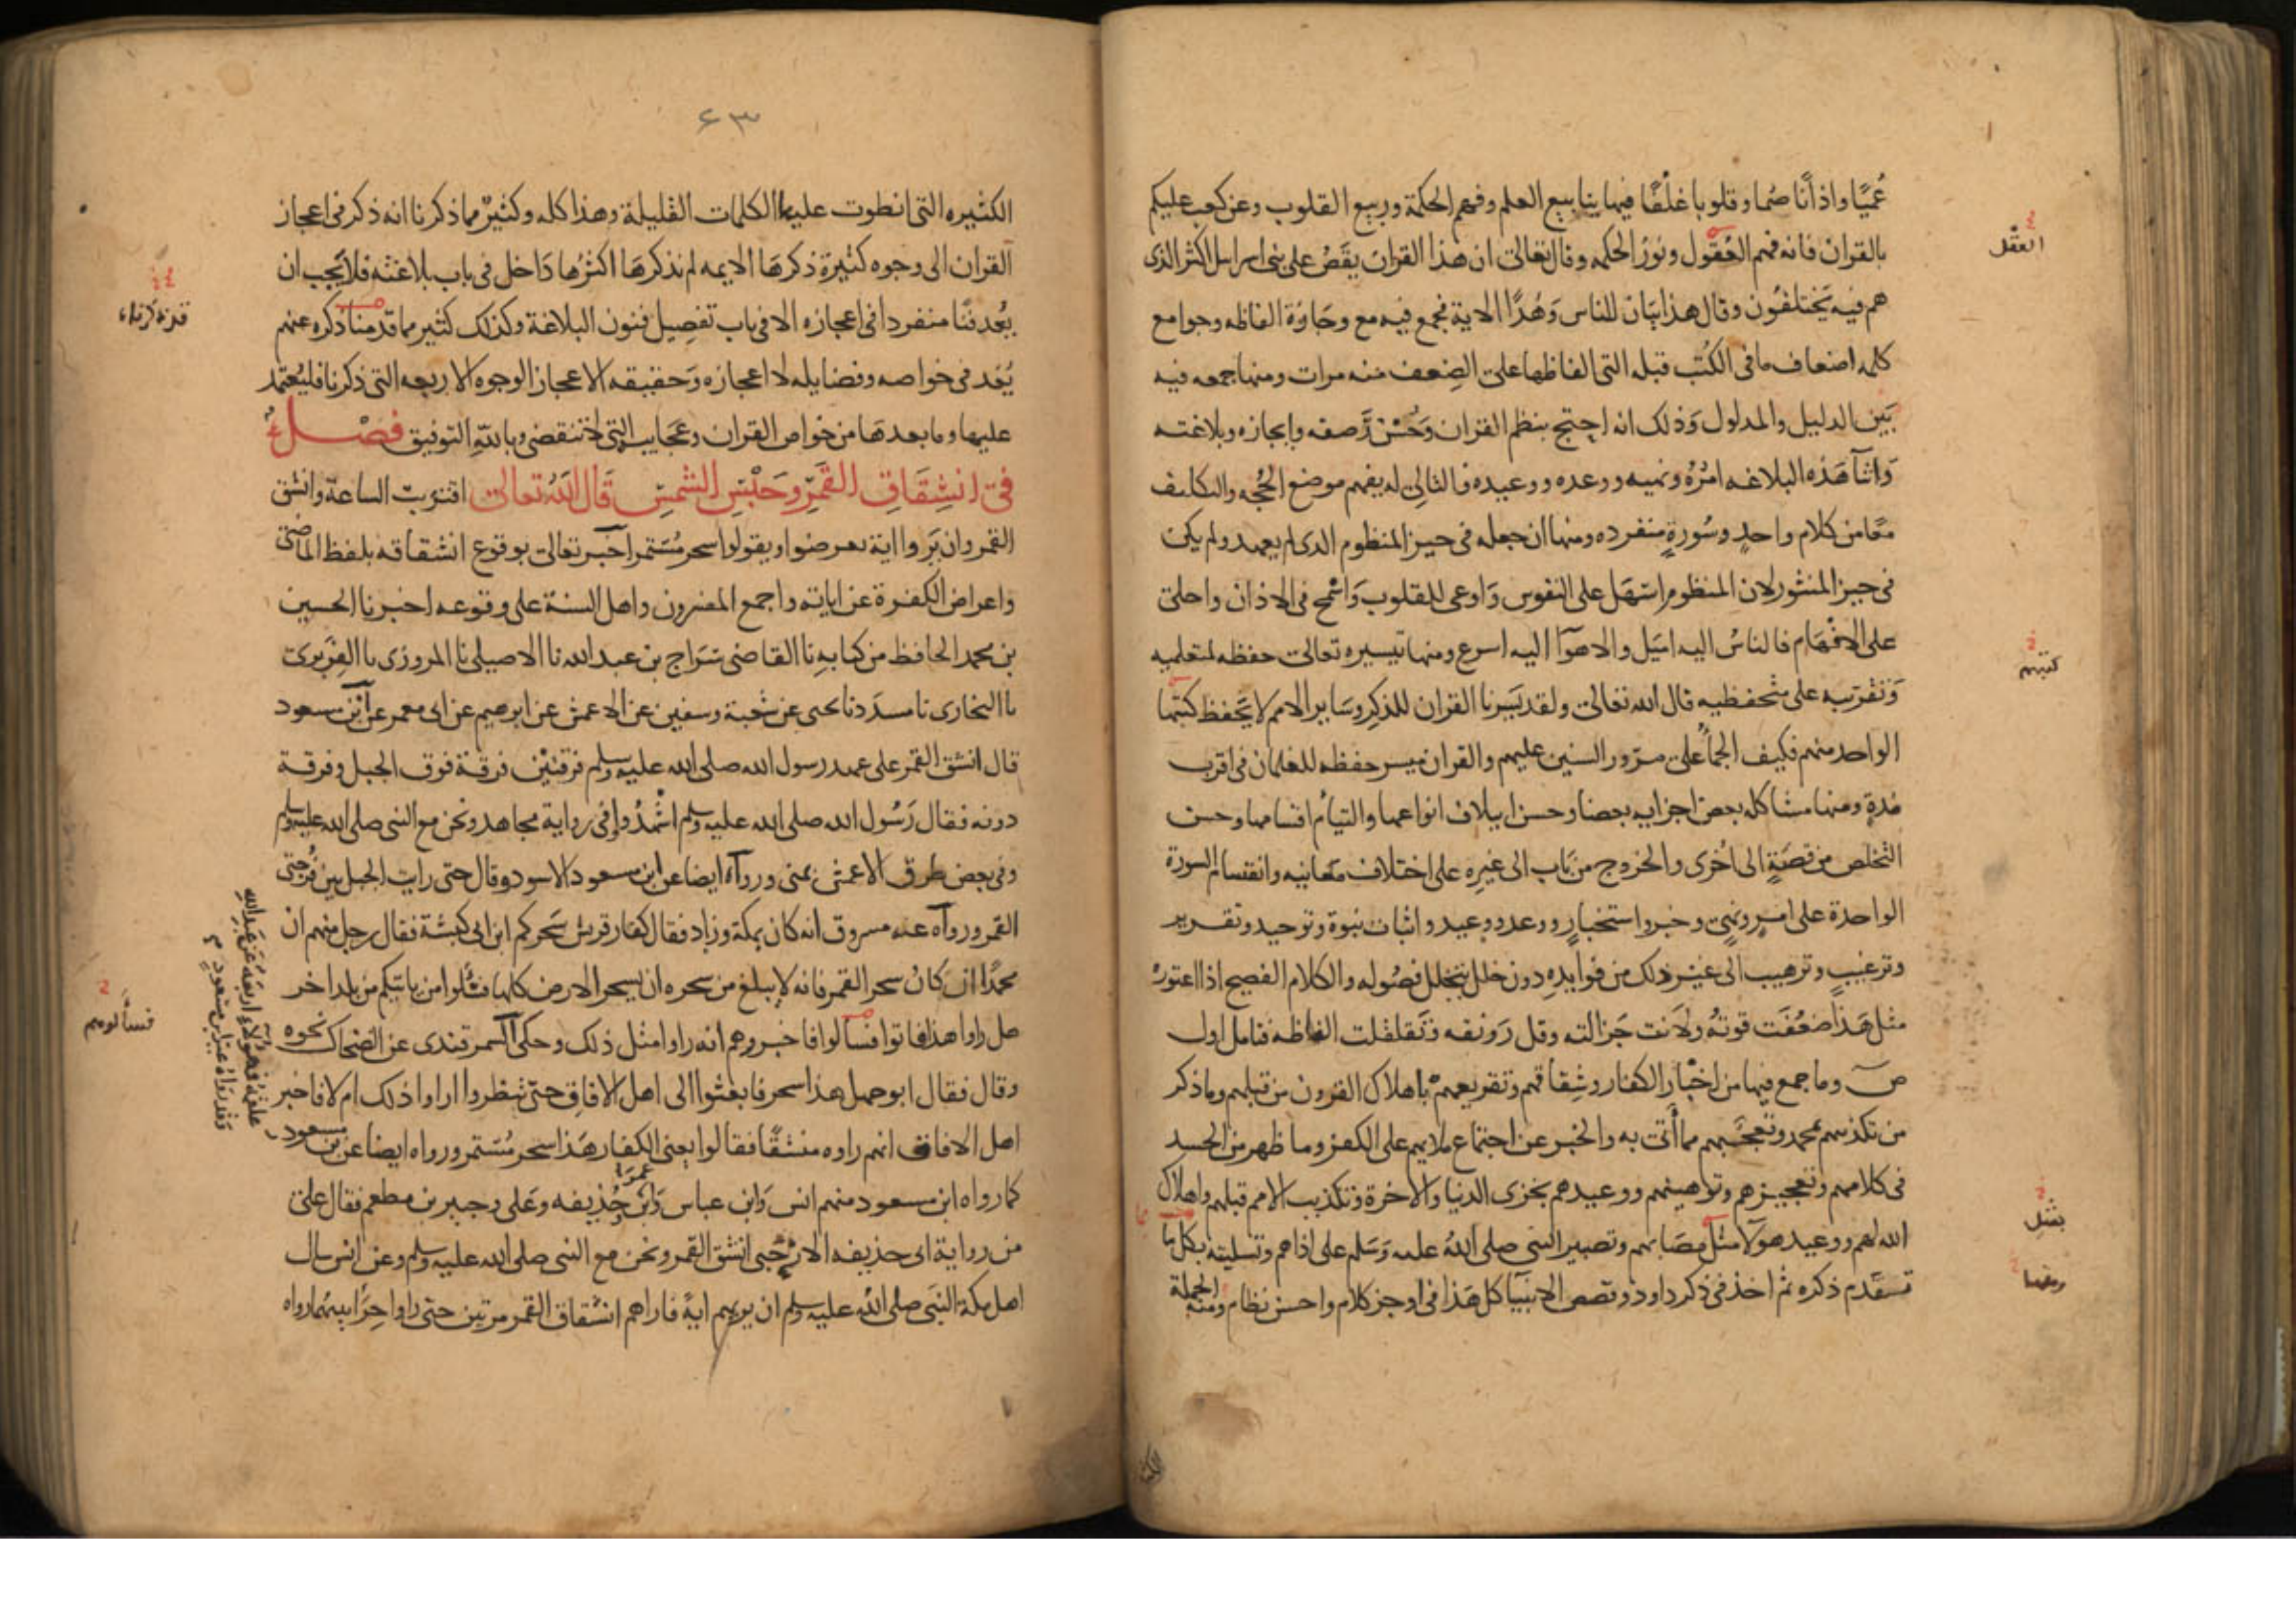 عُميًا واذانًا صُما وقلوبا غلفًا فيها ينابيع العلم وفهم الحكمة وربيع القلوب وعن كعب عليكم
بالقران فانه فهم العُقول ونور الحكمه وقال تعالى ان هذا القران يقص على بنى اسرايل اكثر الذى
العقل
هم فيه يختلفون وقال هذا بيان للناس وَهُدًا الاية فجمع فيه مع وجازة الفاظه وجوامع
كلمه اضعاف ما فى الكُتب قبله التى الفاظها على الضِعف منه مرات ومنها جمعه فيه
بَين الدليل والمدلول وَذلك انه احتج بنظم القران وَحُسْن رَصفه وايجازه وبلاغته
وَاثنآ هَذه البلاغه امْرُهُ ونهيه ووعده ووعيده فالتالى له يفهم موضع الحُجه والتكليف
معًا من كلام واحدٍ وسُورةٍ منفرده ومنها ان جعله فى حيز المنظوم الذى لم يعهد ولم يكن
فى حيز المنثور لان المنظوم اسْهَل على النفوس وَاوعى للقلوب وَاسْمح فى الاذان واحلى
على الافْهَام فالناسُ اليه امْيَل والاهوآ اليه اسرع ومنها تيسيره تعالى حفظه لمتعلميه
وَتقريبه على متحفظيه قال الله تعالى ولقد يَسَرنا القران للذكِر وسَاير الامم لا يَحفظ كتبَها
كتبهم
الواحد منهم فكيف الجمآءُ على مرور السنين عليهم والقران ميسر حفظه للغلمان فى اقرب
مُدةٍ ومنها مشاكله بعض اجزايه بعضا وحسن ايتلاف انواعها والتيام اقسامها وحسن
التخلص من قصّةٍ الى اخْرى والخروج من بَاب الى غيرِه على اختلاف معانيه وانقسام السورة
الواحدة على امرٍ ونهىٍ وخبر واستخبارٍ ووعد ووعيد واثبات نبوة وتوحيد وتقرير
وترغيبٍ وترهيب الى غير ذلك من فوايدِهِ دون خلل يتخلل فصُوله والكلام الفصيح اذا اعتورهُ
مثل هَذا ضعُفَت قوتهُ ولَانت جَزالته وقل رَونقه وتقلقلت الفاظه فتامل اول
ص وما جمع فيها من اخبار الكفار وشِقاقهم وتقريعهمْ باهلاك القرون من قبلهم وما ذكر
من تكذيبهم بمحمد وتعجبهم مما أتى به والخبر عن اجتماع ملايهم على الكفر وما ظهر من الحسد
فى كلامهم وتعجيزهم وتوهينهم ووعيدهم بخزى الدنيا والاخرة وتكذيب الامم قبلهم واهلاك
الله لهم ووعيد هولآ مثل مصَابهم وتصبير النبى صلى اللهُ عليه وَسَلم على اذاهم وتسليته بكل ما
بمثل
تقدم ذكره ثم اخذ فى ذكر داود وقصص الانبيآ كل هَذا فى اوجز كلام واحسن نظام ومنه الجملة
ومنها
٦٣
الكثيره التى انطوت عليها الكلمات القليلة وهذا كله وكثيرْ مما ذكرنا انه ذكر فى اعجاز
القران الى وجوه كثيرة ذكرهَا الايمه لم نذكرهَا اكثرُها دَاخل فى باب بلاغته فلا يَجب ان
يُعد فنًا منفردا فى اعجازه الا فى باب تفصِيل فنون البلاغة وكذلك كثير مما قدمنا ذكره عنهم
يُعَد فى خواصه وفضايله لا اعجازه وَحقيقه الاعجاز الوجوه الاربعه التى ذكرنا فليُعتمد
عليها وما بعدهَا من خواص القران وعَجَايبه التى لا تنقضى وباللهِ التوفيق فصْل
فى انشِقَاقِ القمَرِ وحَبْسِ الشمسِ قَالَ اللَهُ تعالى اقتربت الساعة وانشق
القمر وان يَروا اية يعرضوا ويقولوا سحر مُسْتمر اخبر تعالى بوقوع انشقاقه بلفظ الماضى
واعراض الكفرة عن اياته واجمع المفسرون واهل السنة على وقوعه اخبرنا الحسين
بن محمد الحافظ من كتابه نا القاضى سَرَاج بن عبد الله نا الاصيلى نا المروزى نا الفِرَبرى
نا البخارى نا مسدَد نا يحيى عن شعبة وسفين عن الاعمش عن ابرهيم عن ابى معمر عن ابْن مسعود
قال انشق القمر على عهد رسول الله صلى الله عليه وسلم فرقتيْن فرقة فوق الجبل وفرقة
دونه فقال رَسُول الله صلى الله عليه وسلم اشْهَدُوا وفى رواية مجاهد ونحن مع النبى صلى الله عليه وسلم
وفى بعض طرق الاعمش بمنى ورواه ايضا عن ابن مسعود الاسود وقال حتى رايت الجبل بين فُرجتى
القمر ورواه عنه مسروق انه كان بمكة وزاد فقال كفار قريش سَحَركم ابن ابى كبشة فقال رجل منهم ان
محمدًا ان كان سحر القمر فانه لا يبلغ من سحره ان يسحر الارض كلها فسْئَلوا من ياتيكم من بلد اخر
هل راوا هذا فاتوا فسالوا فاخبروهم انه راوا مثل ذلك وحكى السمرقندى عن الضحاك نحوه
فسألوهم
وقال فقال ابو جهل هذا سحر فابعثوا الى اهل الافاقِ حتى تنظروا اراوا ذلك ام لا فاخبر
اهل الافاق انهم راوه منشقًا فقالوا يعنى الكفار هَذا سحر مُسْتمر ورواه ايضا عن بن مسعود
علقمَه فهولآء اربَعَه عَن عَبدِ اللهِ
وَقد رَوَاهُ غير ابن مسعودٍ
كما رواه ابن مسعود منهم انس وَابن عباس وَابن عمر وَحُذيفه وَعَلى وجبير بن مطعم فقال على
من رواية ابى حذيفه الارْحَبى انشق القمر ونحن مع النبى صلى الله عليه وسلم وعن انس سال
اهل مكة النَبى صلى الله عليه وسلم ان يريهم ايةً فاراهم انشقاق القمر مرتين حتى راوا حِرًا بينهُما رواه